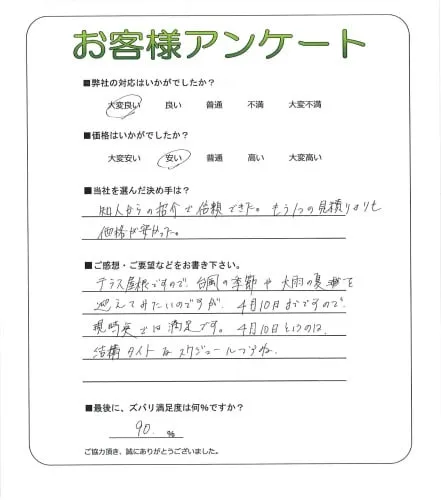 お客様アンケート
■弊社の対応はいかがでしたか?
大変良い 良い 普通 不満 大変不満
■価格はいかがでしたか?
大変安い 安い 普通 高い 大変高い
■当社を選んだ決め手は?
知人からの紹介で信頼できた。もう1つの見積りよりも
価格が安かった。
■ご感想・ご要望などをお書き下さい。
テラス屋根ですので、台風の季節や大雨の夏を
迎えてみたいのですが、4月10日までですので、
現時点では満足です。4月10日というのは、
結構タイトなスケジュールですね。
■最後に、ズバリ満足度は何%ですか?
90 %
ご協力頂き、誠にありがとうございました。